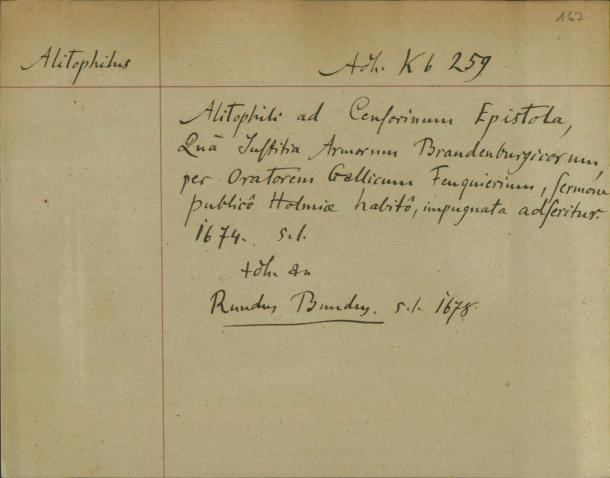 167
Alitophilus
Adh. Kb 259
Alitophili ad Cenſorinum Epistola,
Quâ Juſtitia Armorum Brandenburgicorum,
per Oratorem Gallicum Feuquierium, ſermone
publicô Holmiæ habitô, impugnata adſeritur.
1674. s.l.
Adh. an
Rundus Bundus. s.l. 1678.